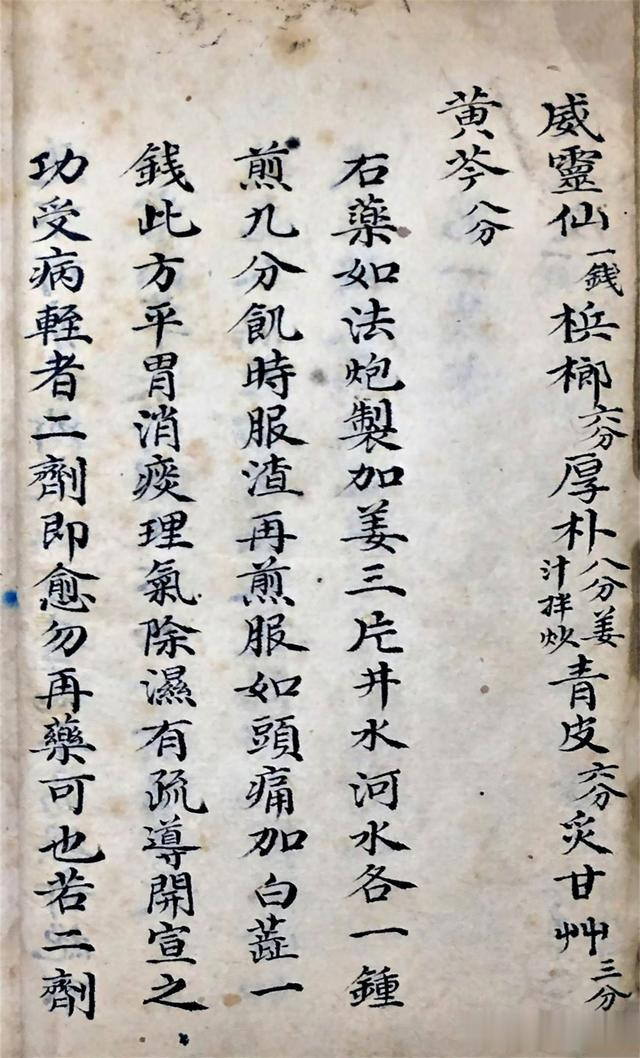 威靈仙一錢梹榔六分厚朴八分姜汁拌炒青皮六分炙甘艸三分
黄芩八分
右藥如法炮製加姜三片井水河水各一鍾
煎九分飢時服渣再煎服如頭痛加白芷一
錢此方平胃消痰理氣除濕有疏導開宣之
功受病輕者二劑即愈勿再藥可也若二劑